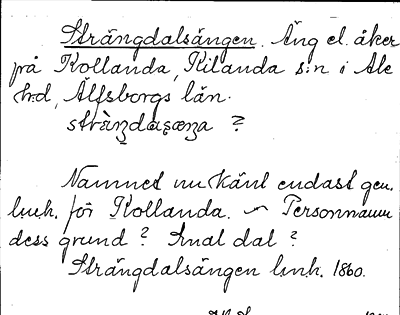 Strängdalsängen. Äng el. åker
på Kollanda, Kilanda s:n i Ale
h:d, Älfsborgs län.
?
Namnet nu känt endast gm.
lmh. för Kollanda. ~ Personnamn
dess grund? Smal dal?
Strängdalsängen lmh. 1860.